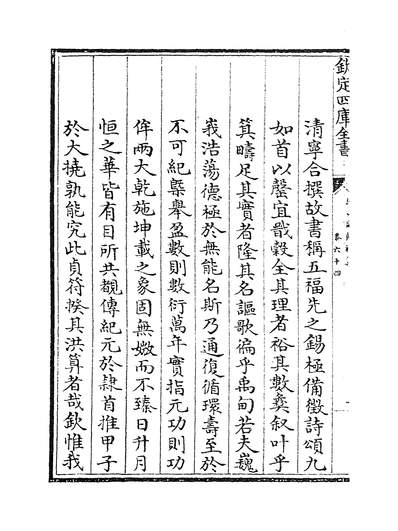 欽定四庫全書
卷六十四
清寧合撰故書稱五福先之錫極備徵詩頌九
如首以罄宜戩穀全其理者裕其數彝叙叶乎
箕疇足其實者隆其名謳歌徧乎禹甸若夫巍
峩浩蕩德極於無能名斯乃通復循環壽至於
不可紀槩舉盈數則數衍萬年實指元功則功
侔兩大乾施坤載之象固無媺而不臻日升月
恒之華皆有目所共覩傳紀元於隷首推甲子
於大撓孰能究此貞符揆其洪算者哉欽惟我